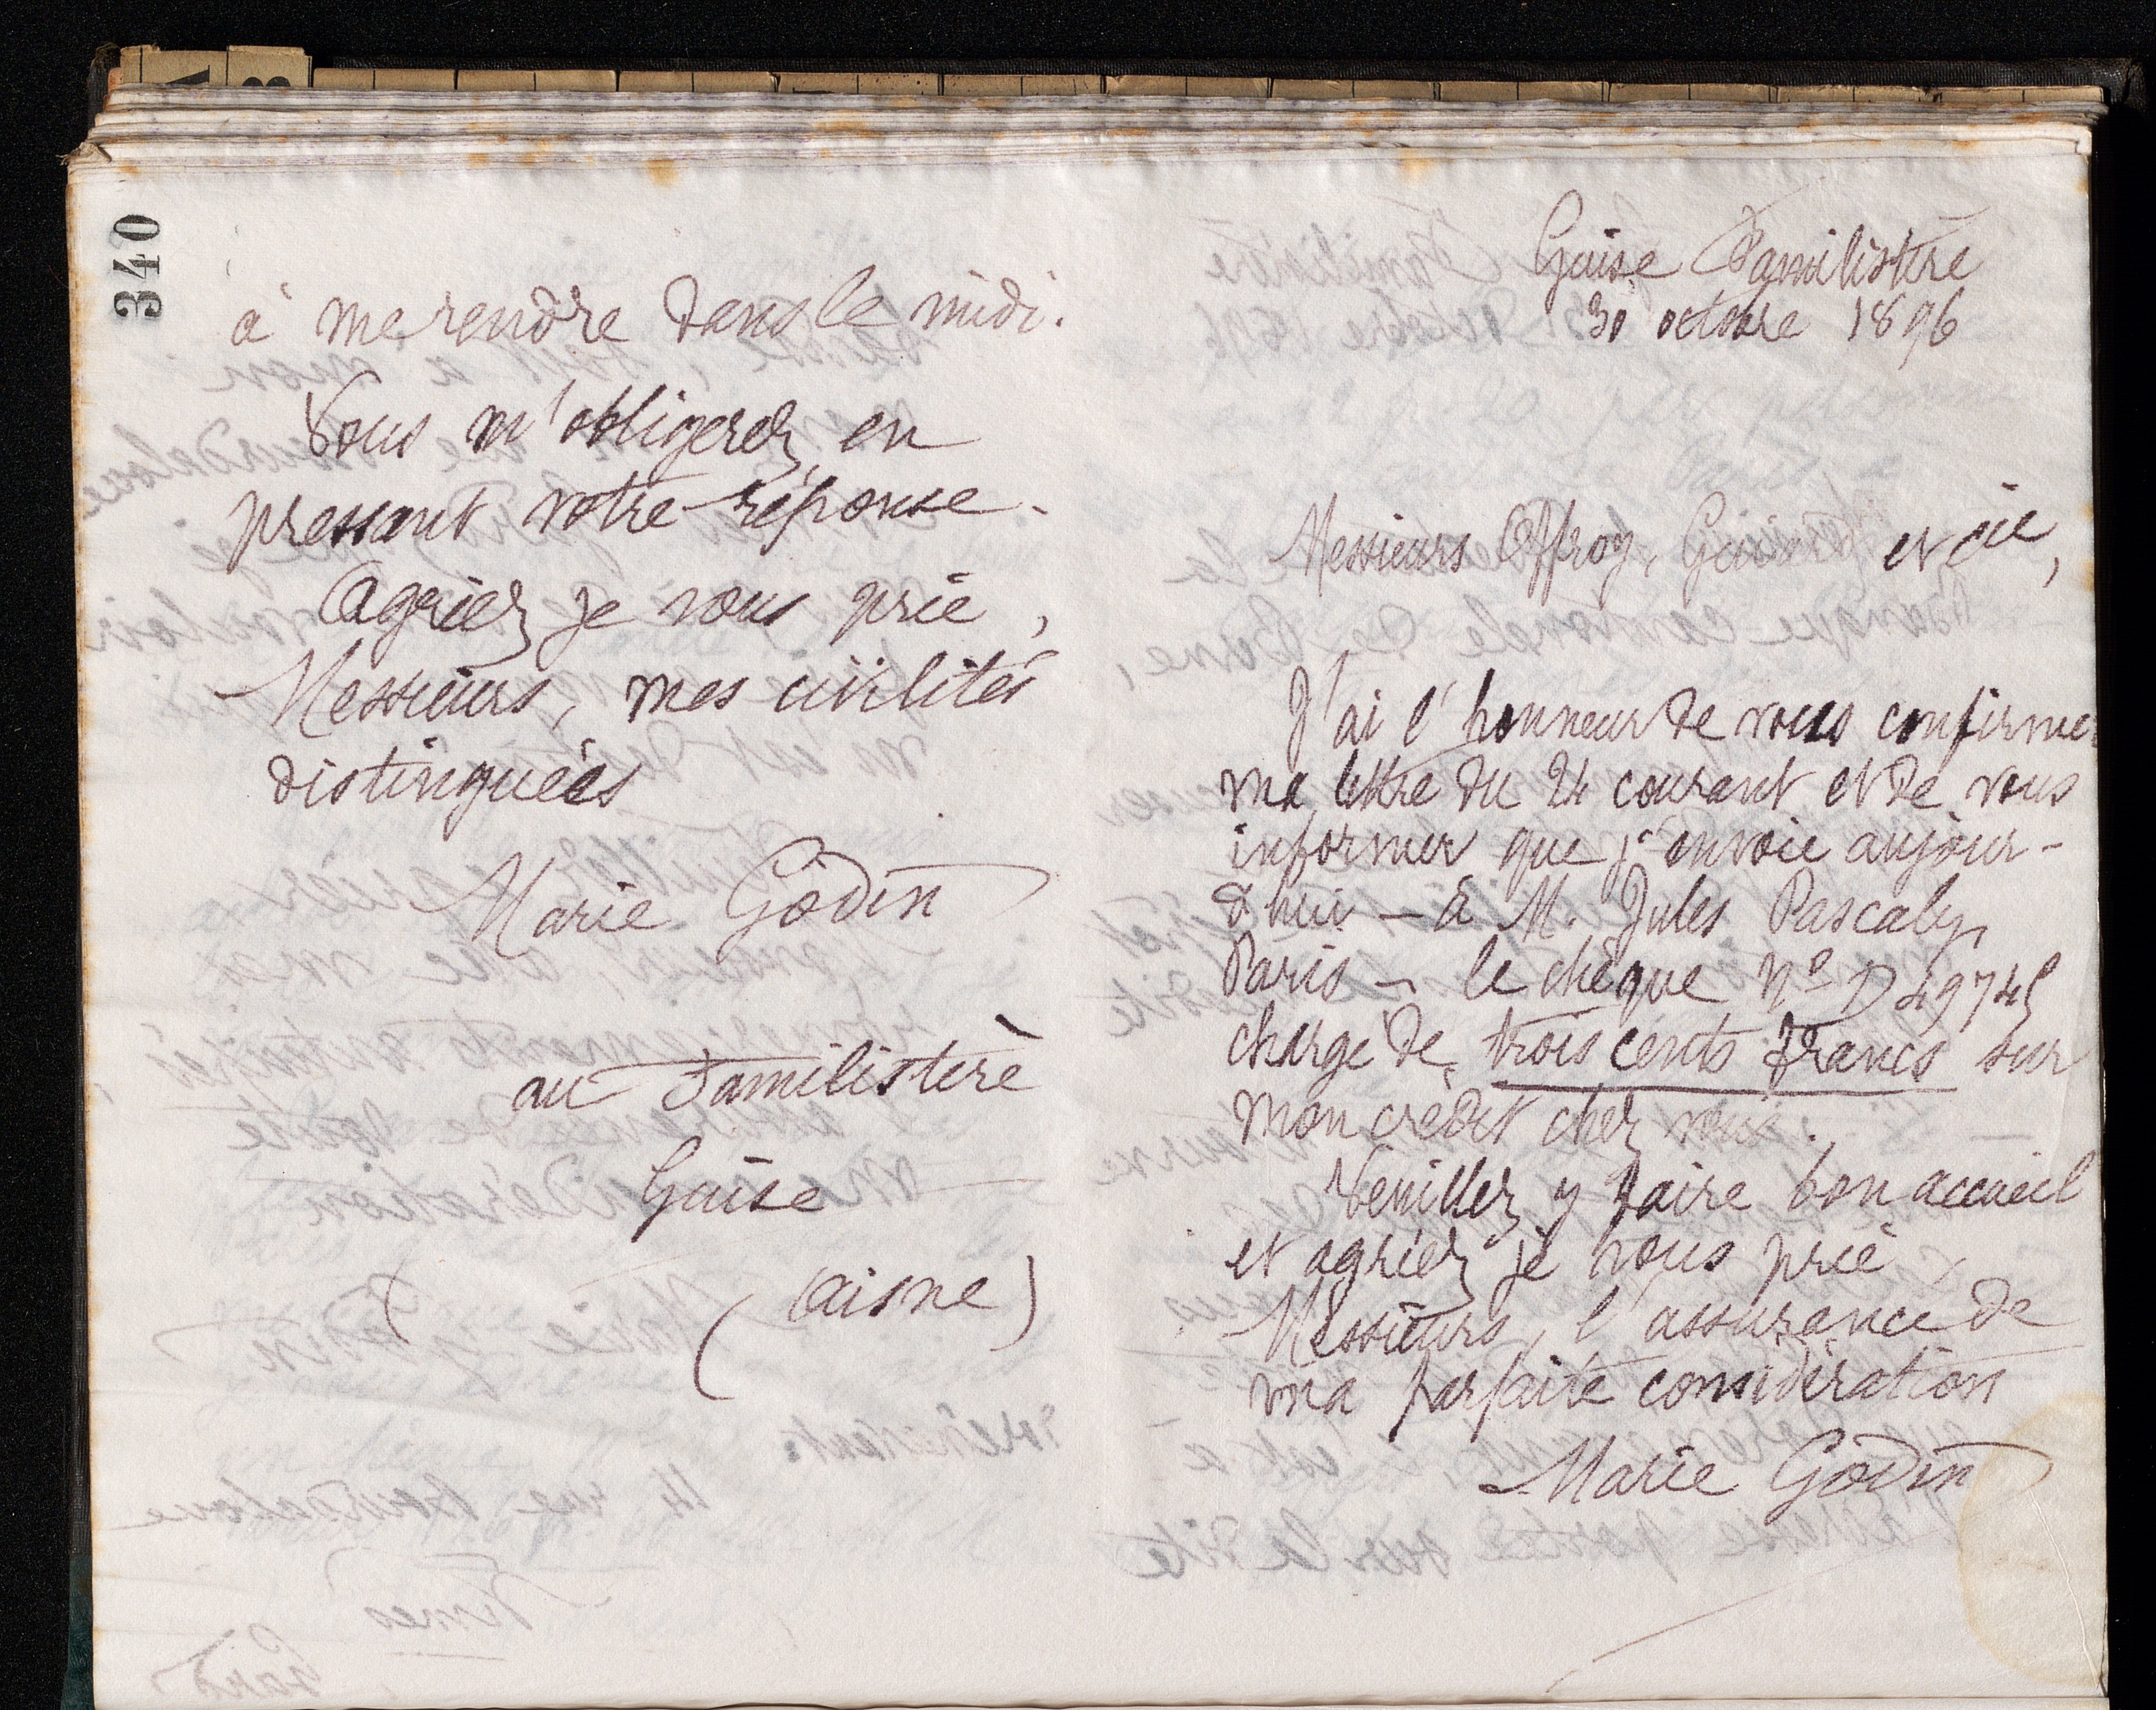 340
à me rendre dans le midi.
Vous m'obligerez en
pressant votre réponse.
Agréez je vous prie,
Messieurs, mes civilités
distinguées
Marie Godin
au Familistère
Guise
(Aisne)
Guise Familistère
30 octobre 1896
Messieurs Offroy, et Cie,
J'ai l'honneur de vous confirmer
ma lettre du 24 courant et de vous
informer que j'envoie aujour-
d'hui – à M. Jules Pascaly,
Paris – le chèque No D 49745
charge de trois cents francs sur
mon crédit chez vous.
Veuillez y faire bon accueil
et agréez je vous prie,
Messieurs, l'assurance de
ma parfaite considération
Marie Godin